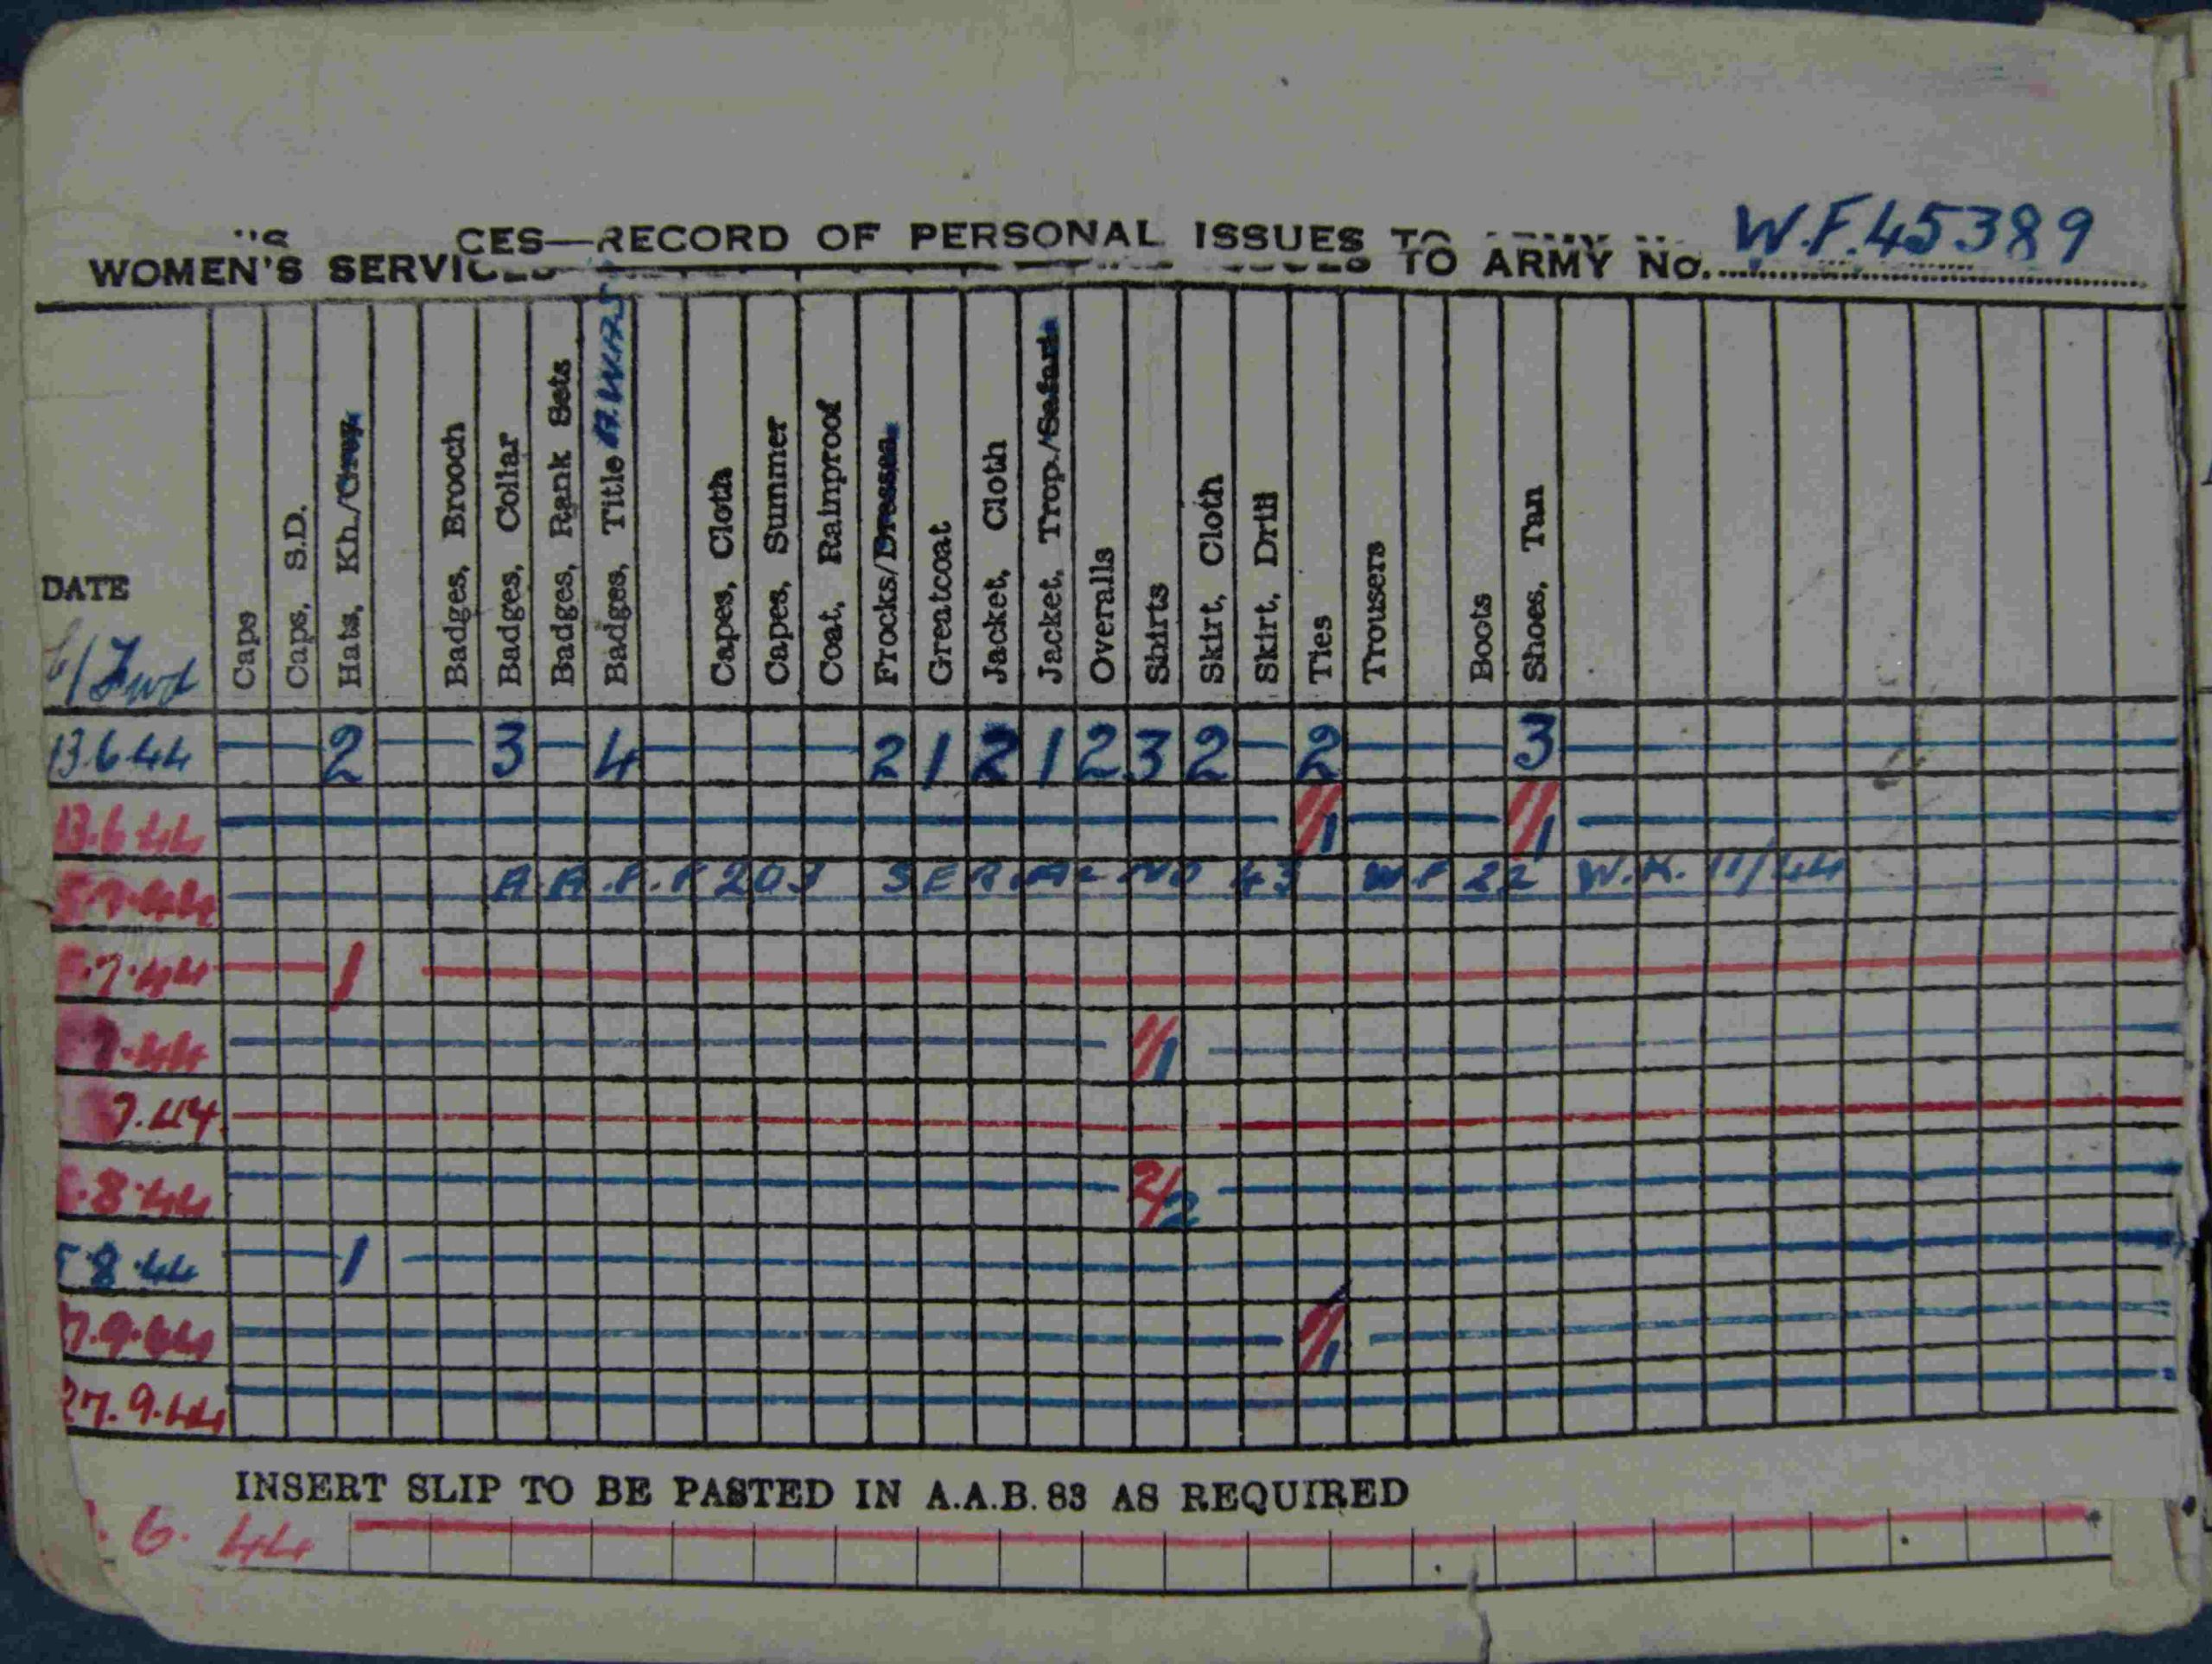 WOMEN'S SERVICES—RECORD OF PERSONAL ISSUES TO ARMY No. W.F.45389
DATE
Fwd
Caps
Caps, S.D.
Hats, Kh./Grey
Badges, Brooch
Badges, Collar
Badges, Rank Sets
Badges, Title A.W.A.S
Capes, Cloth
Capes, Summer
Coat, Rainproof
Frocks/Dresses
Greatcoat
Jacket, Cloth
Jacket, Trop./Safari
Overalls
Shirts
Skirt, Cloth
Skirt, Drill
Ties
Trousers
Boots
Shoes, Tan
13.6.44 2 3 4 2 1 2 1 2 3 2 2 3
13.6.44 1/1 1/1
SERIAL NO 43 WF 22 W.K. 11/44
.7.44 1
.7.44 1/1
7.44
.8.44 2/2
8.44 1
7.9.44 1/1
27.9.44
INSERT SLIP TO BE PASTED IN A.A.B. 83 AS REQUIRED
.6.44